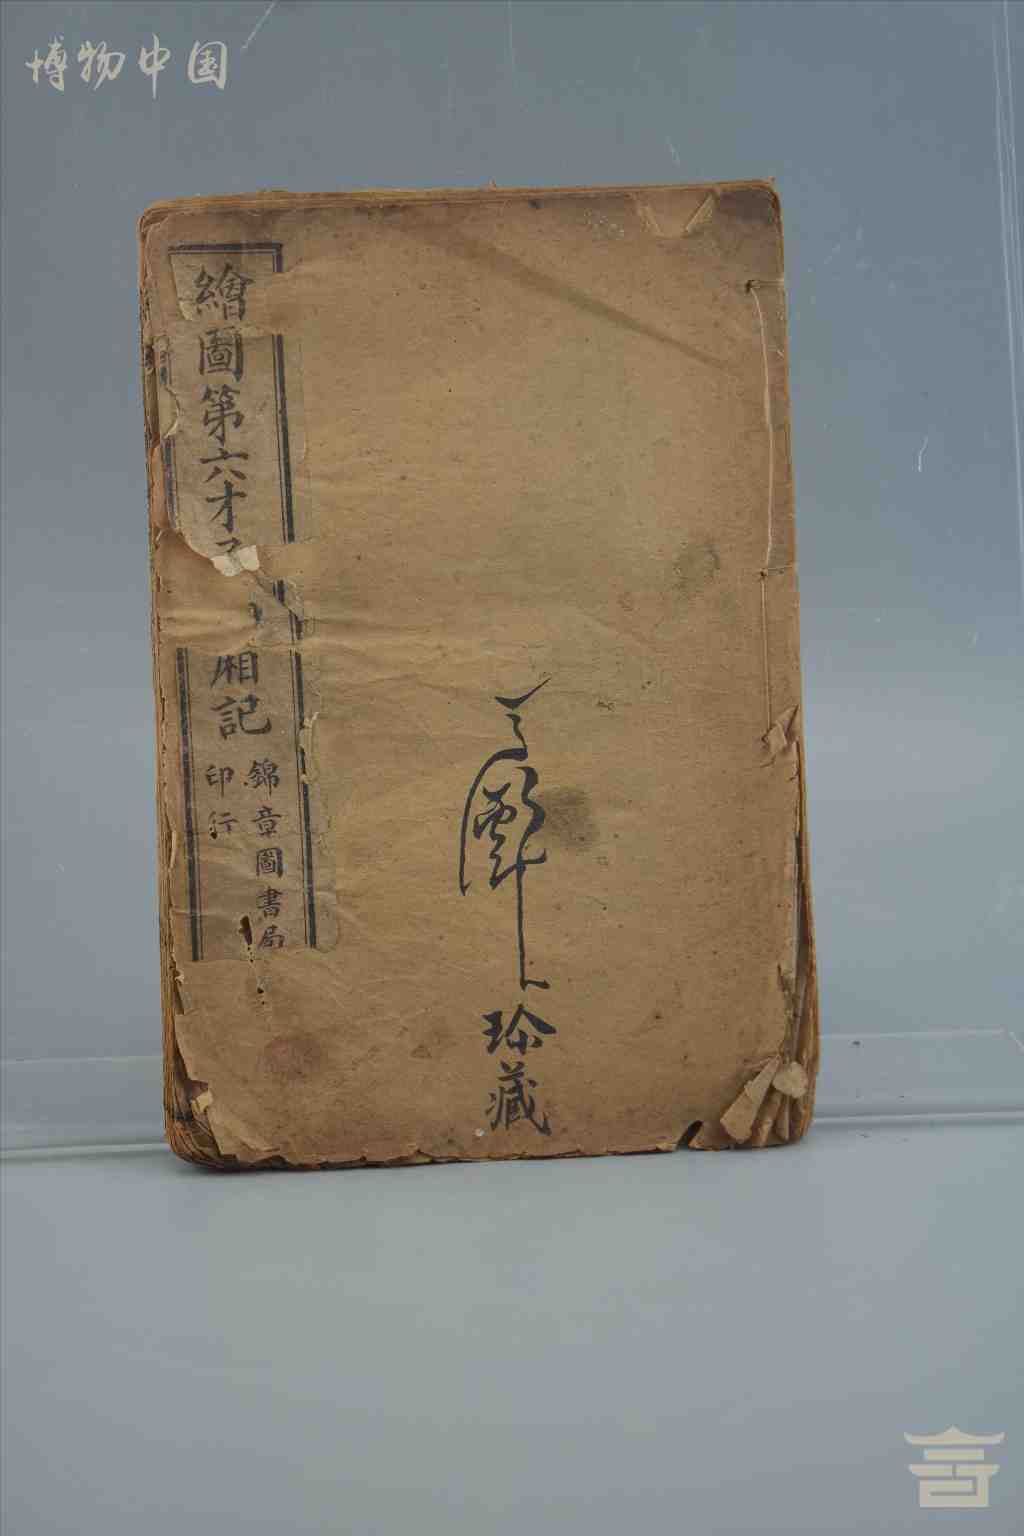 博物中国
繪圖第六才子
廂記
錦章圖書局
印行
珍藏